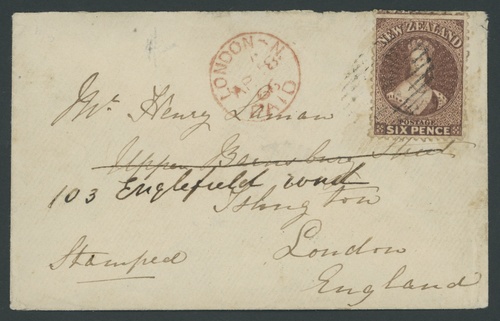 NEW ZEALAND
POSTAGE
SIX PENCE
LONDON-N
PAID
Mr. Henry Laman
Upper Barnsbury Street
103 Englefield road
Islington
London
England
Stamped